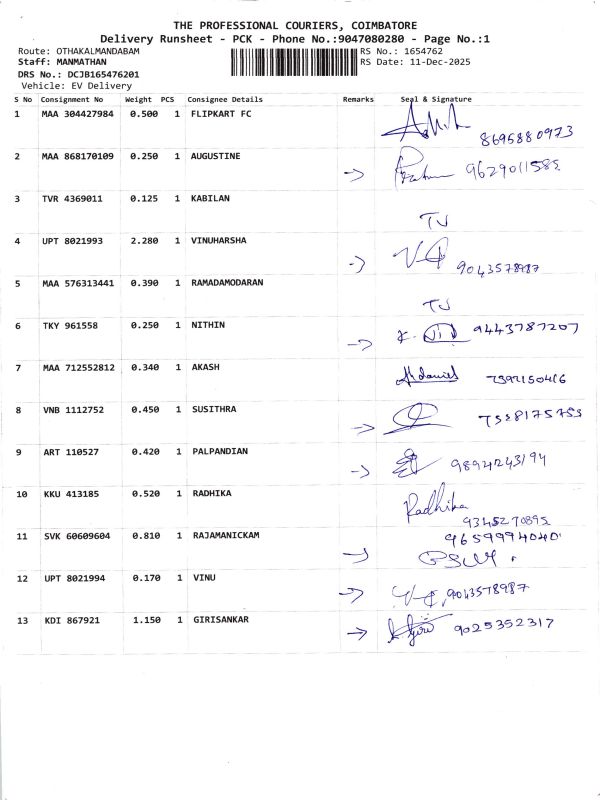 THE PROFESSIONAL COURIERS, COIMBATORE
Delivery Runsheet - PCK - Phone No.:9047080280 - Page No.:1
Route: OTHAKALMANDABAM RS No.: 1654762
Staff: MANMATHAN RS Date: 11-Dec-2025
DRS No.: DCJB165476201
Vehicle: EV Delivery
S No Consignment No Weight PCS Consignee Details Remarks Seal & Signature
1 MAA 304427984 0.500 1 FLIPKART FC
8695880973
2 MAA 868170109 0.250 1 AUGUSTINE
→ 9629011585
3 TVR 4369011 0.125 1 KABILAN
TJ
4 UPT 8021993 2.280 1 VINUHARSHA
→ 9043578987
5 MAA 576313441 0.390 1 RAMADAMODARAN
TJ
6 TKY 961558 0.250 1 NITHIN
→ 9443787207
7 MAA 712552812 0.340 1 AKASH
8 VNB 1112752 0.450 1 SUSITHRA
→
9 ART 110527 0.420 1 PALPANDIAN
→ 9894243194
10 KKU 413185 0.520 1 RADHIKA
Radhika
9345270895
11 SVK 60609604 0.810 1 RAJAMANICKAM
9659994040
→
12 UPT 8021994 0.170 1 VINU
→ 9043578987
13 KDI 867921 1.150 1 GIRISANKAR
→ 9025352317